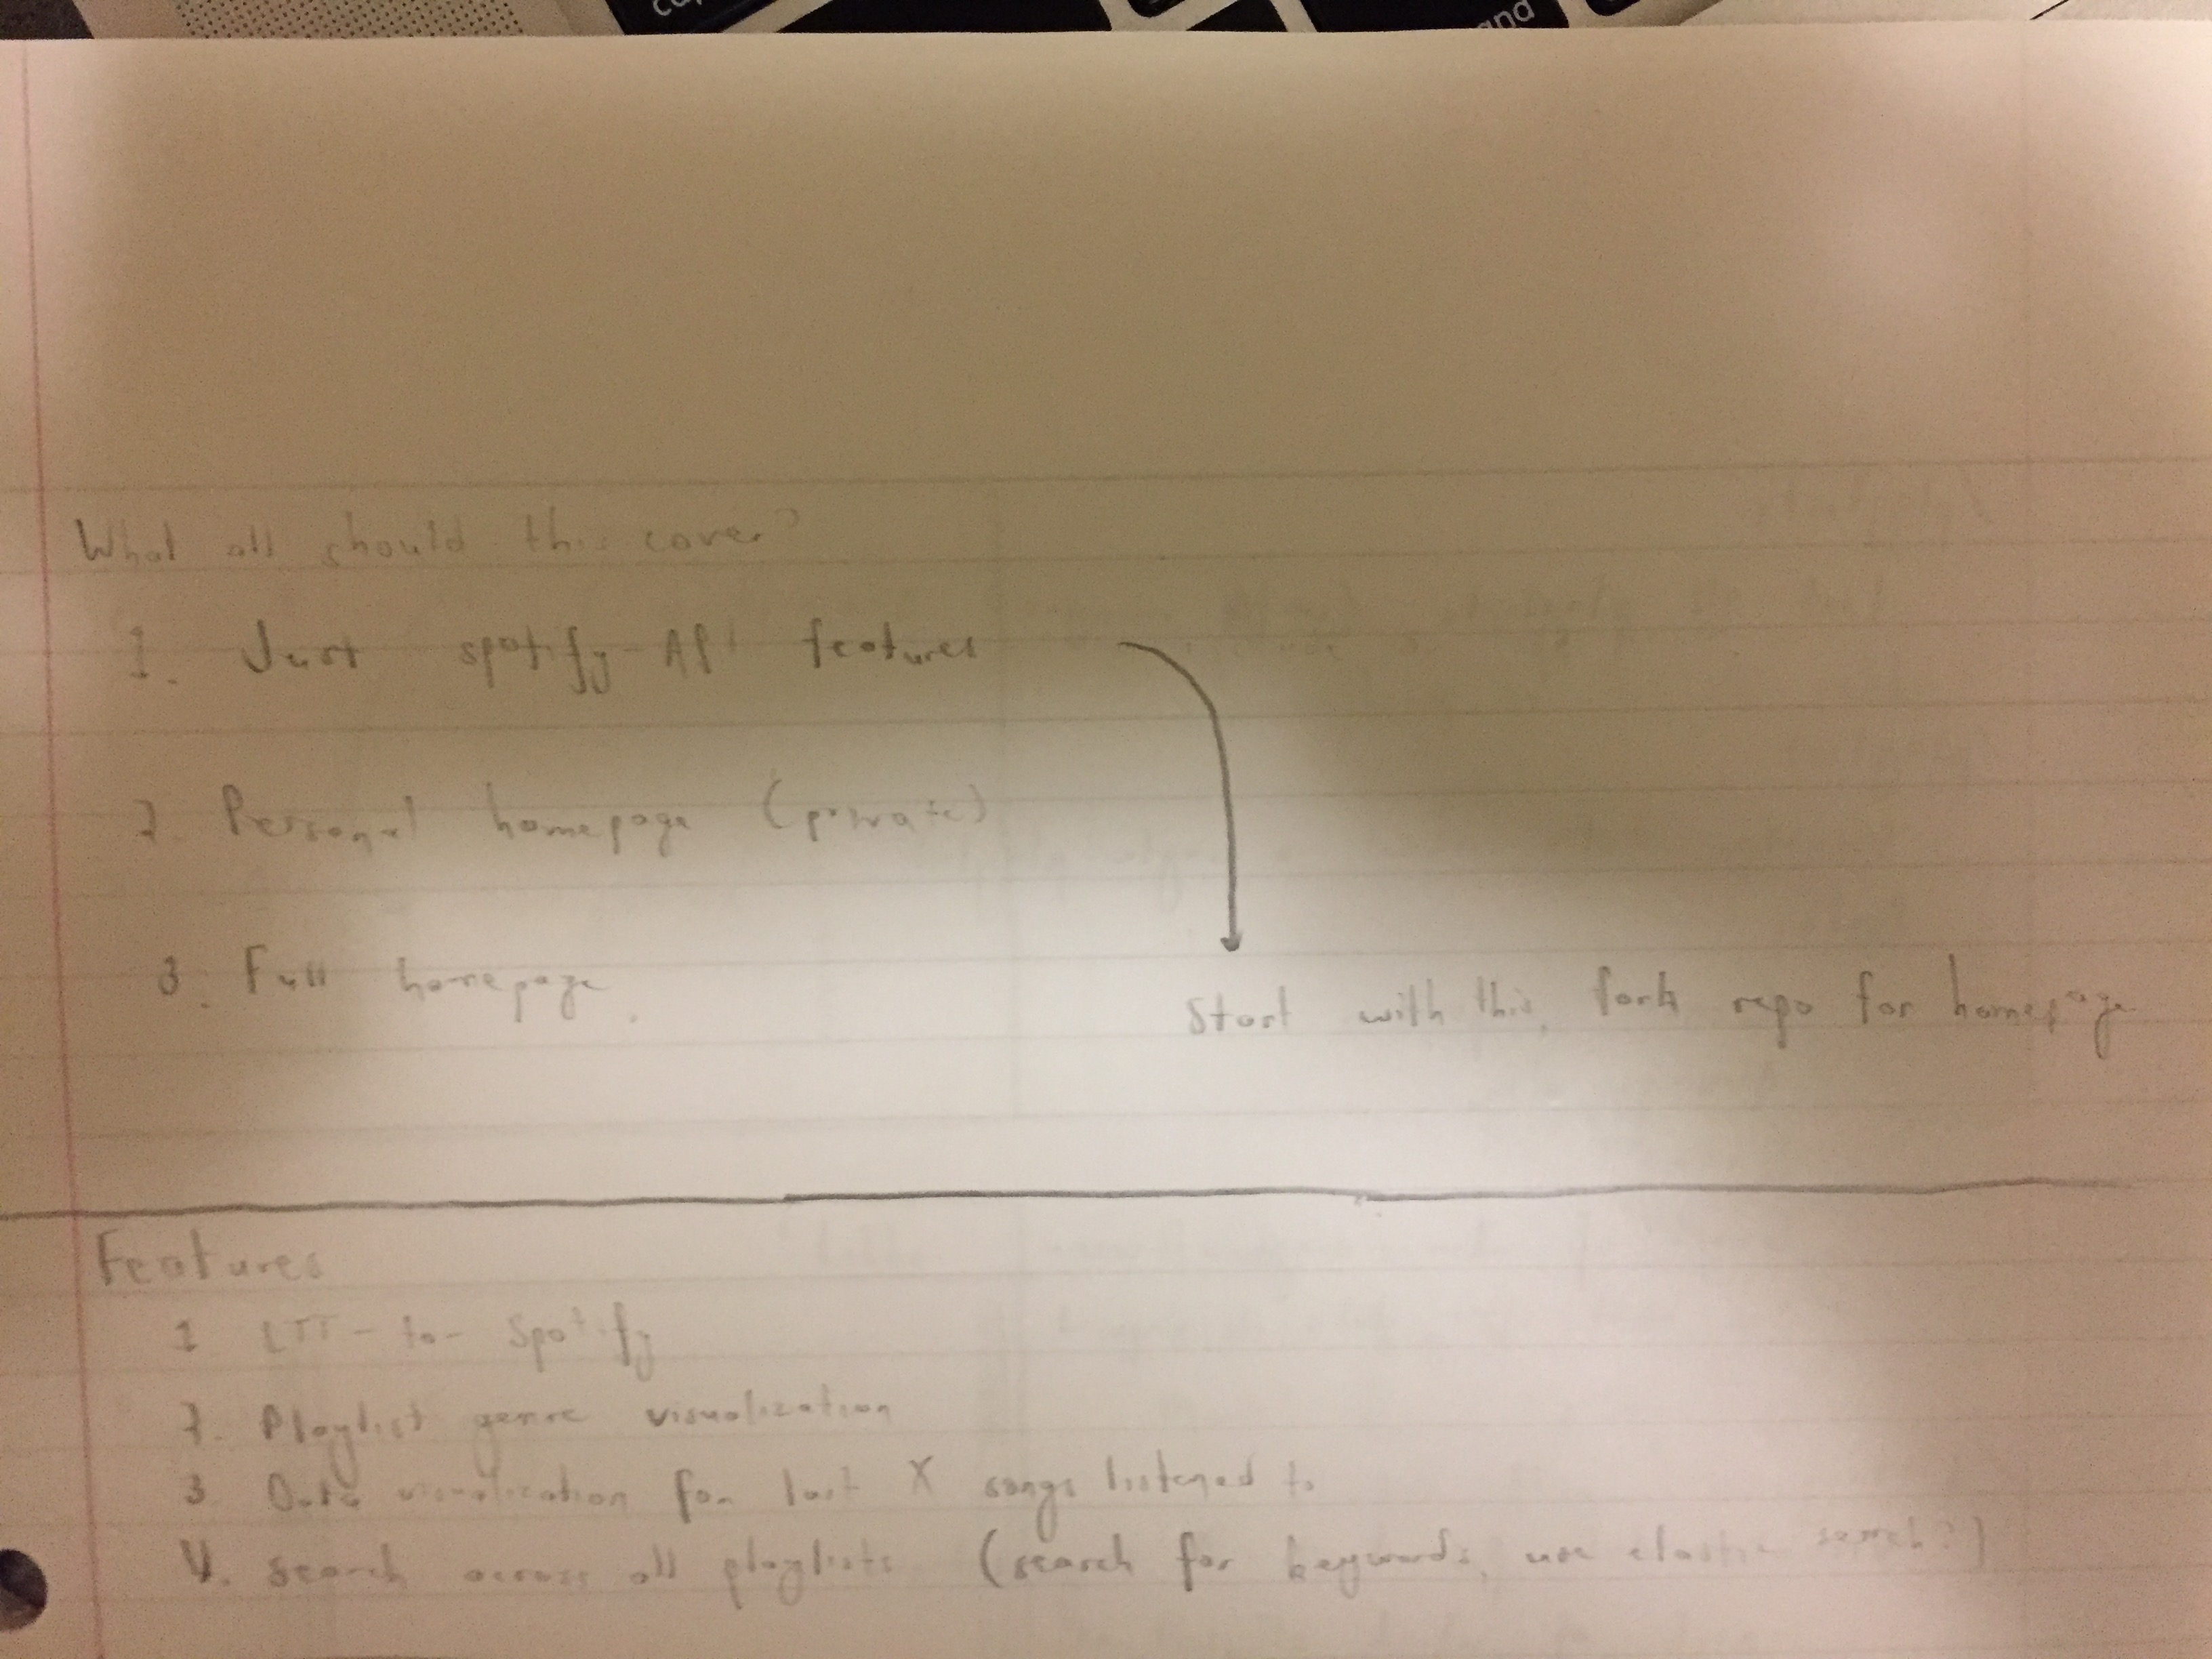 What all should this cover?
1. Just spotify-API features
2. Personal homepage (private)
3. Full homepage.
Start with this, fork repo for homepage
Features
1 LTT-to-Spotify
2. Playlist genre visualization
3 Data visualization for last X songs listened to
4. Search across all playlists (search for keywords, use elastic search?)